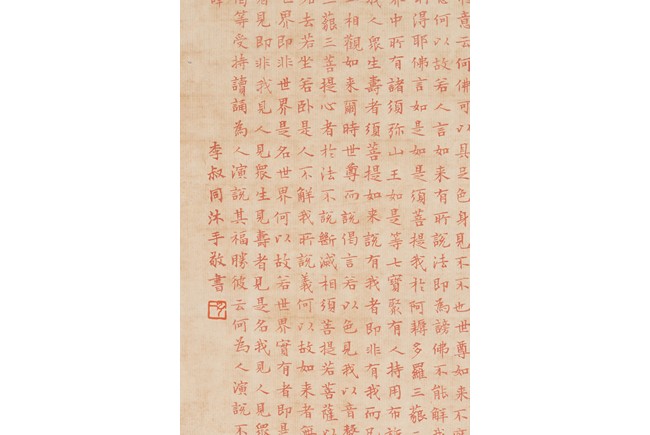 意云何佛可以具足色身見不不也世尊如来不
何以故若人言如来有所說法即為謗佛不能解我
得耶佛言如是如是須菩提我於阿耨多羅三藐
界中所有諸須弥山王如是等七寶聚有人持用布施
我人衆生壽者須菩提如来說有我者即非有我而凡
相觀如来爾時世尊而說偈言若以色見我以音聲
三藐三菩提心者於法不說斷滅相須菩提若菩薩以
去若坐若卧是人不解我所說義何以故如来者無
世界即非世界是名世界何以故若世界實有者即是
見即非我見人見衆生見壽者見是名我見人見衆
等受持讀誦為人演說其福勝彼云何為人演說不
李叔同沐手敬書